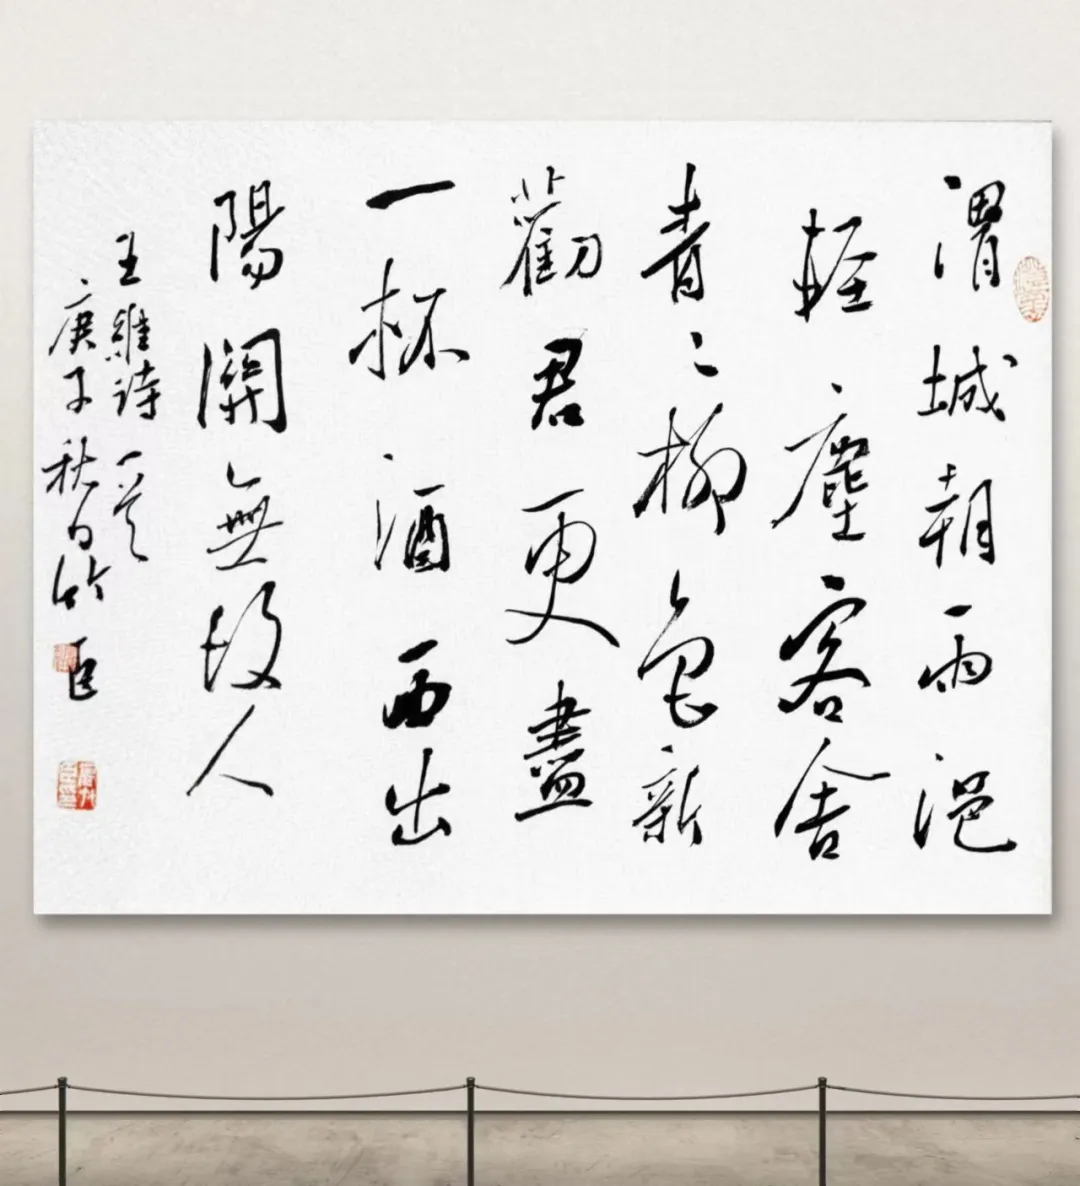 渭城朝雨浥
輕塵客舍
青〻柳色新
勸君更盡
一杯酒西出
陽關無故人
王維詩一首
庚子秋日竹臣